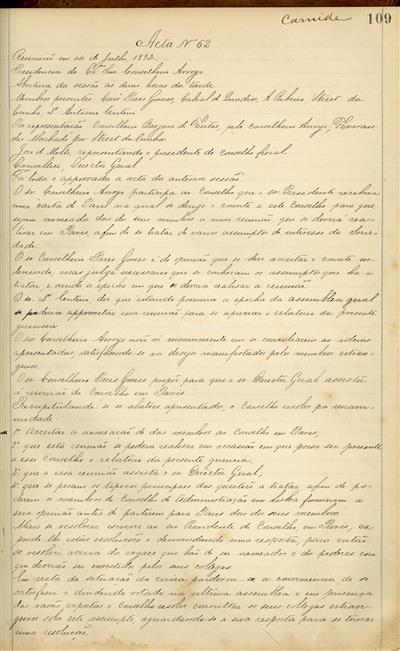 Carnide 109
Acta Nº 62
Reunião em 14 de Julho, 1892
Presidencia do Exº Snr Conselheiro Arroyo
Abertura da sessão ás duas horas da tarde
Membros presentes: Peres Gomes, Cabral de Quadros, A. Street da
Cunha, Sº Antonio Centeno
Por representação Conselheiro pelo conselheiro Arroyo,
de Machado por Street da Cunha
José de Mello, representando o presidente do conselho fiscal
Director Geral
Foi lida e approvada a acta da anterior sessão.
O sr. Conselheiro Arroyo participa ao Conselho que o sr Presidente recebera
uma carta de Paris na qual se dirige o convite a este Conselho para que
sejam nomeados dois dos seus membros a uma reunião, que se deverá rea-
lisar em Paris, afim de se tratar de varios assumptos de interesse da Socie-
dade.
O sr Conselheiro Peres Gomes é de opinião que se deve acceitar o convite en-
dereçado, mas julga necessario que se conheçam os assumptos que ha a
tratar e ainda a epocha em que se devera realisar a reunião.
O sr. Sº Centeno, diz que estando proxima a epocha da assemblea geral
se poderia approveitar essa reunião para se apreciar o relatorio da presente
gerencia.
O sr Conselheiro Arroyo não vê inconveniente em se conciliarem as ideias
apresentadas satisfazendo-se ao desejo manifestado pelos membros estran-
geiros.
O sr Conselheiro Peres Gomes propõe para que o sr Director Geral assista
á reunião do Conselho em Paris.
Recapitulando-se os alvitres apresentados, o Conselho resolve por unani-
midade
1º Acceitar a nomeação de dois membros ao Conselho em Paris;
2º que esta reunião se podera realisar em occasião em que possa ser presente
a esse conselho o relatorio da presente gerencia;
3º que a essa reunião assista o sr Director Geral;
4º que se peçam os topicos principaes das questões a tratar, afim de po-
derem os membros do Conselho de Administração em Lisboa formarem a
sua opinião antes de partirem para Paris dois dos seus membros.
Mais se resolveu escrever ao sr Presidente do Conselho, em Paris, ex-
pondo-lhe estas resoluções e demandando uma resposta, para então
se resolver ácerca dos vogaes que hão de ser nomeados e dos poderes com
que deverão ser investidos pelos seus collegas.
Em vista da situação da caixa, ponderou-se a conveniencia de se
satisfazer o dividendo votado na ultima assemblea e em presença
das rasões expostas o Conselho resolve consultar os seus collegas estran-
geiros sobre este assumpto, aguardando-se a sua resposta para se tomar
uma resolução.